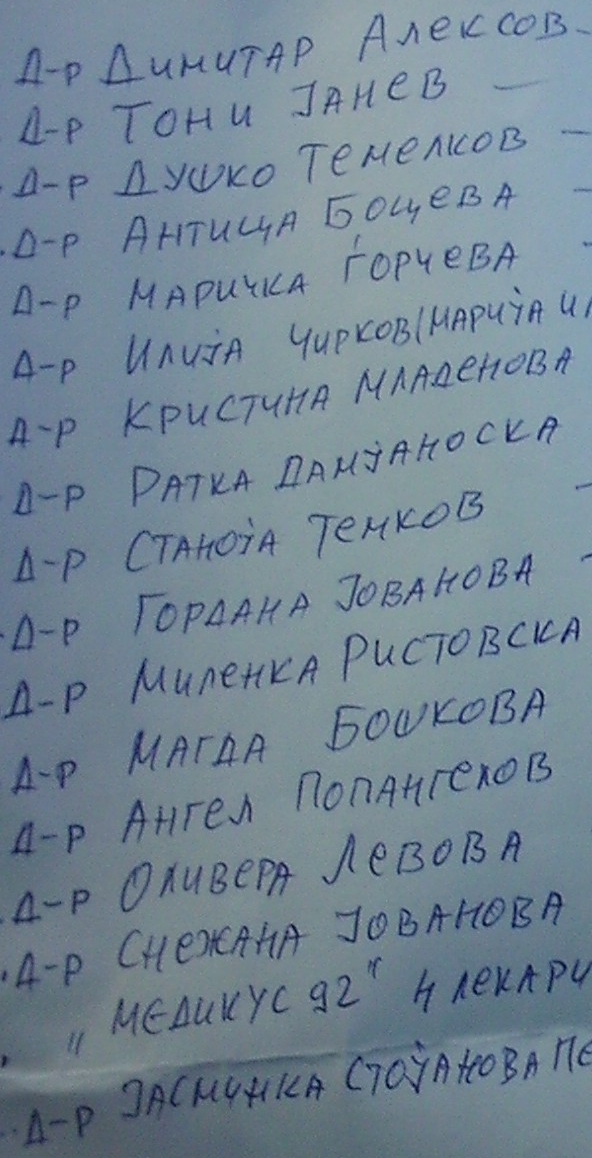 Д-р Димитар Алексов -
Д-р Тони Јанев -
Д-р Душко Темелков -
Д-р Антица Боцева -
Д-р Маричка Ѓорчева -
Д-р Илија Чирков (Марија
Д-р Кристина Младенова
Д-р Ратка Дамјаноска
Д-р Станоја Темков -
Д-р Гордана Јованова -
Д-р Миленка Ристовска
Д-р Магда Бошкова
Д-р Ангел Попангелов
Д-р Оливера Левова
Д-р Снежана Јованова
„Медикус 92" 4 лекари
Д-р Јасминка Стојанова